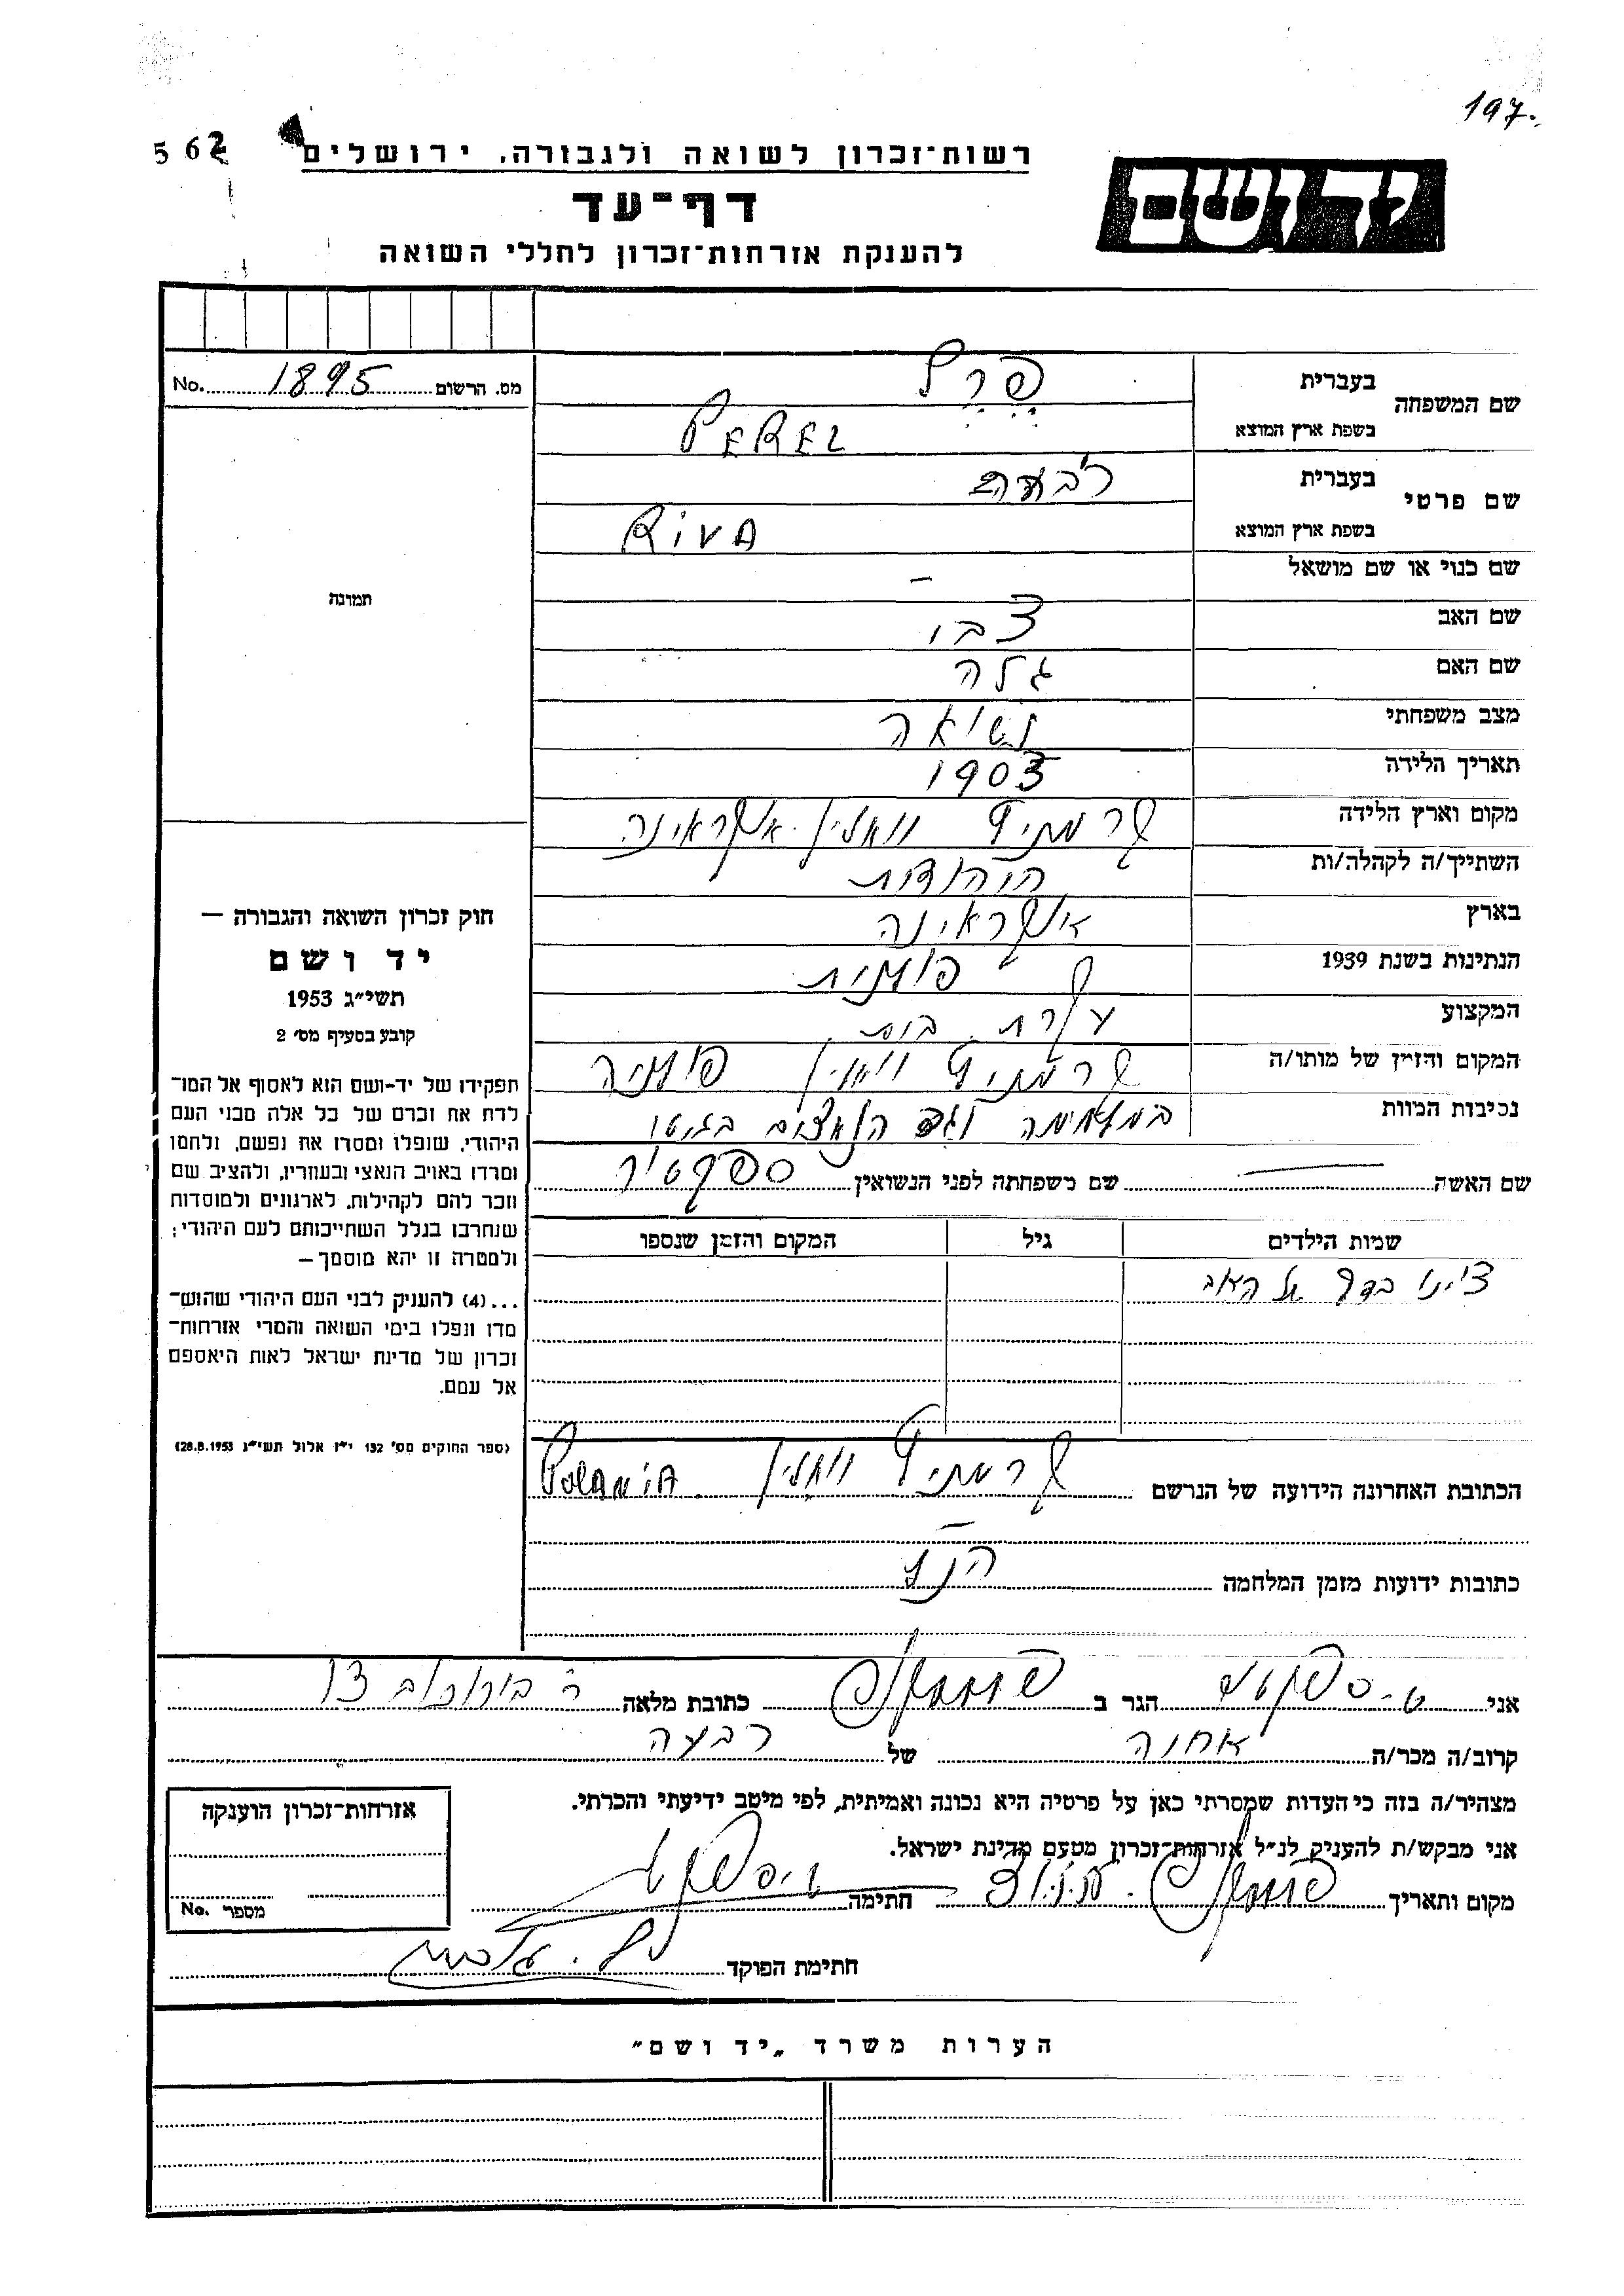 197.
562
רשות־זכרון לשואה ולגבורה, ירושלים
יד ושם
דף־עד
להענקת אזרחות־זכרון לחללי השואה
מס. הרשום 1895 No.
תמונה
שם המשפחה בעברית פרל
בשפת ארץ המוצא PEREL
שם פרטי בעברית
בשפת ארץ המוצא RIVA
שם כנוי או שם מושאל –
שם האב צבי
שם האם גלה
מצב משפחתי נשואה
תאריך הלידה 1903
מקום וארץ הלידה קרמניץ וואלין אוקראינה
השתייך/ה לקהלה/ות היהודית
בארץ אוקראינה
הנתינות בשנת 1939 פולנית
המקצוע עקרת בית
המקום והזמן של מותו/ה קרמניץ וואלין פולניה
נסיבות המוות בגיטו
שם האשה — שם משפחתה לפני הנשואין ספקטור
שמות הילדים גיל המקום והזמן שנספו
צוינו בדף של האב
הכתובת האחרונה הידועה של הנרשם קרמניץ וואלין POLANIA
–
כתובות ידועות מזמן המלחמה הנ"ל
חוק זכרון השואה והגבורה —
יד ושם
תשי״ג 1953
קובע בסעיף מס׳ 2
תפקידו של יד־ושם הוא לאסוף אל המו־
לדת את זכרם של כל אלה מבני העם
היהודי, שנפלו ומסרו את נפשם, נלחמו
ומרדו באויב הנאצי ובעוזריו, ולהציב שם
וזכר להם לקהילות, לארגונים ולמוסדות
שנחרבו בגלל השתייכותם לעם היהודי;
ולמטרה זו יהא מוסמך —
...(4) להעניק לבני העם היהודי שהוש־
מדו ונפלו בימי השואה והמרי אזרחות־
זכרון של מדינת ישראל לאות היאספם
אל עמם.
(ספר החוקים מס׳ 132 י״ז אלול תשי״ג 28.8.1953)
אני ט. ספקטור הגר ב כתובת מלאה
קרוב/ה מכר/ה אחיה של רבקה
מצהיר/ה בזה כי העדות שמסרתי כאן על פרטיה היא נכונה ואמיתית, לפי מיטב ידיעתי והכרתי.
אני מבקש/ת להעניק לנ״ל אזרחות־זכרון מטעם מדינת ישראל.
מקום ותאריך חתימה
חתימת הפוקד
אזרחות־זכרון הוענקה
מספר No.
הערות משרד „יד ושם״